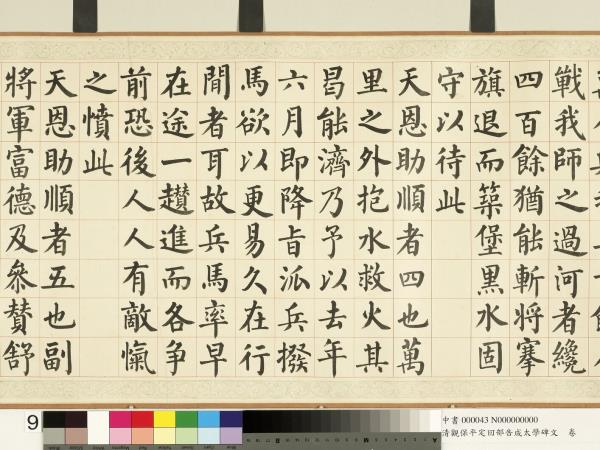 戰我師之過河者纔
四百餘猶能斬將搴
旗退而築堡黑水固
守以待此
天恩助順者四也萬
里之外抱水救火其
曷能濟乃予以去年
六月即降旨派兵撥
馬欲以更易久在行
間者耳故兵馬率早
在途一趲進而各爭
前恐後人人有敵愾
之憤此
天恩助順者五也副
將軍富德及叅贊舒
9
中書 000043 N000000000
清觀保平定回部告成太學碑文 卷